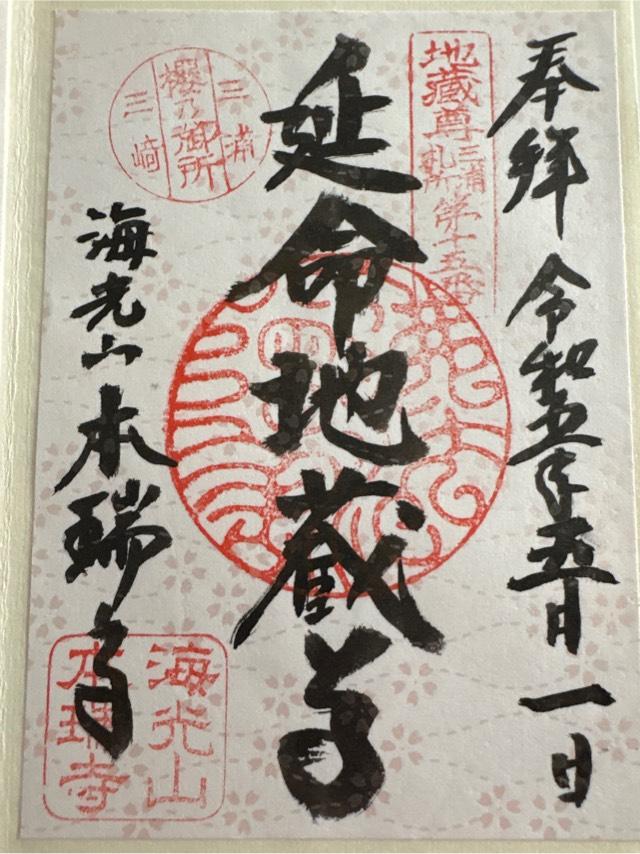 奉拝 令和五年五月一日
地蔵尊三浦札所第十五番
延命地蔀尊
三浦
櫻乃御所
三崎
海光山本瑞寺
海光山
本瑞寺